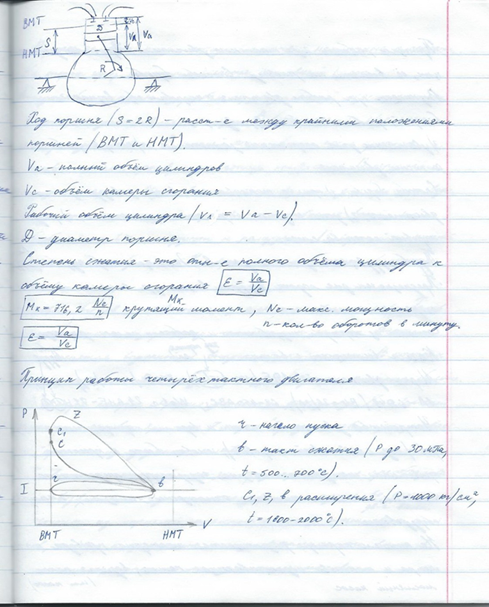 ВМТ
Vc
S
Va
НМТ
R
Ход поршня (S=2R) - расст-е между крайними положениями
поршней (ВМТ и НМТ).
Va - полный объём цилиндров
Vc - объём камеры сгорания
Рабочий объём цилиндра (Vл = Va - Vc).
D - диаметр поршня.
Степень сжатия - это отн-е полного объёма цилиндра к
объёму камеры сгорания ε = Va/Vc
Mк = 716,2 Ne/n крутящий момент Mк, Ne - макс. мощность
n - кол-во оборотов в минуту.
ε = Va/Vc
Принцип работы четырёхтактного двигателя
P
Z
C₁
C
r
I
в
ВМТ
НМТ
V
r - начало пуска
в - такт сжатия (P до 30 мПа,
t = 500..700°C).
C₁, Z, в расширения (P=4000 т/см²,
t = 1800-2000°C).